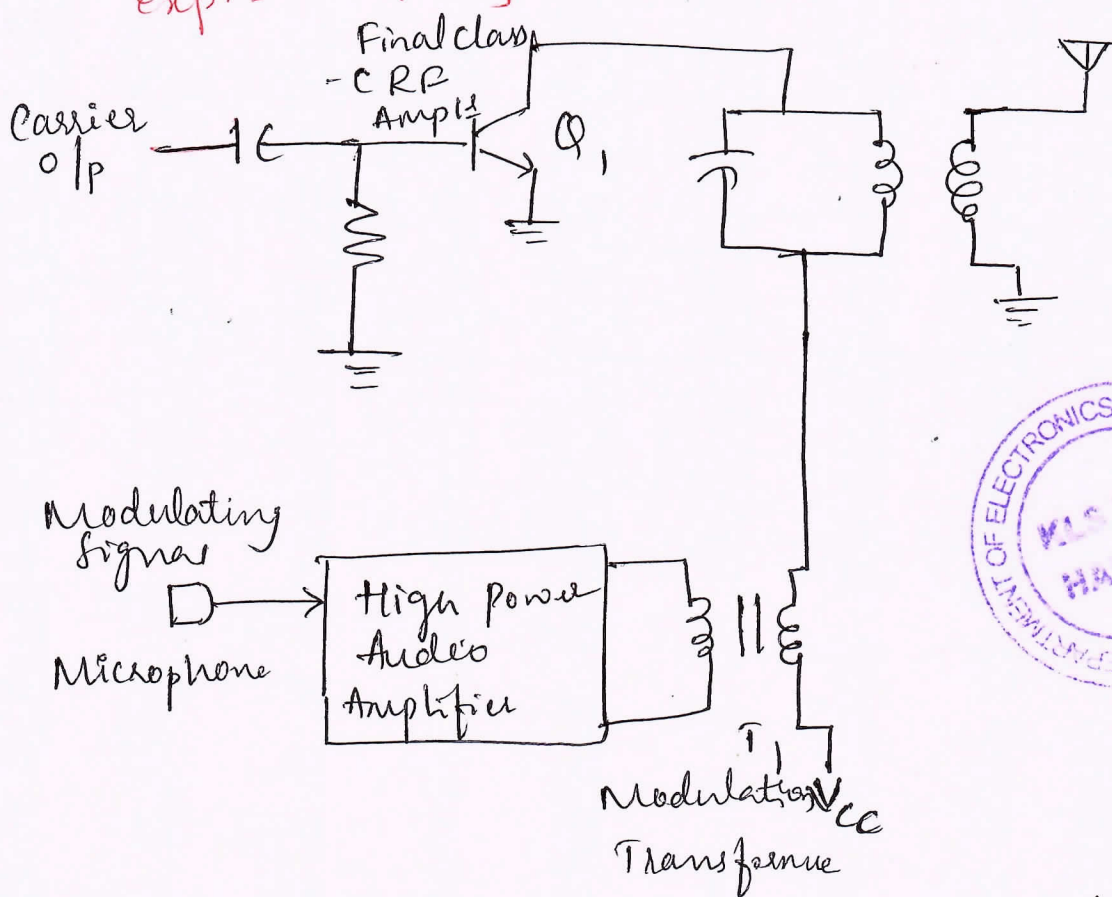 Final class
- C RF
Ampls
Carrier
o/p
Q1
Modulating
Signal
Microphone
High Power
Audio
Amplifier
T1
Modulation
VCC
Transformer
DEPARTMENT OF ELECTRONICS
KLS